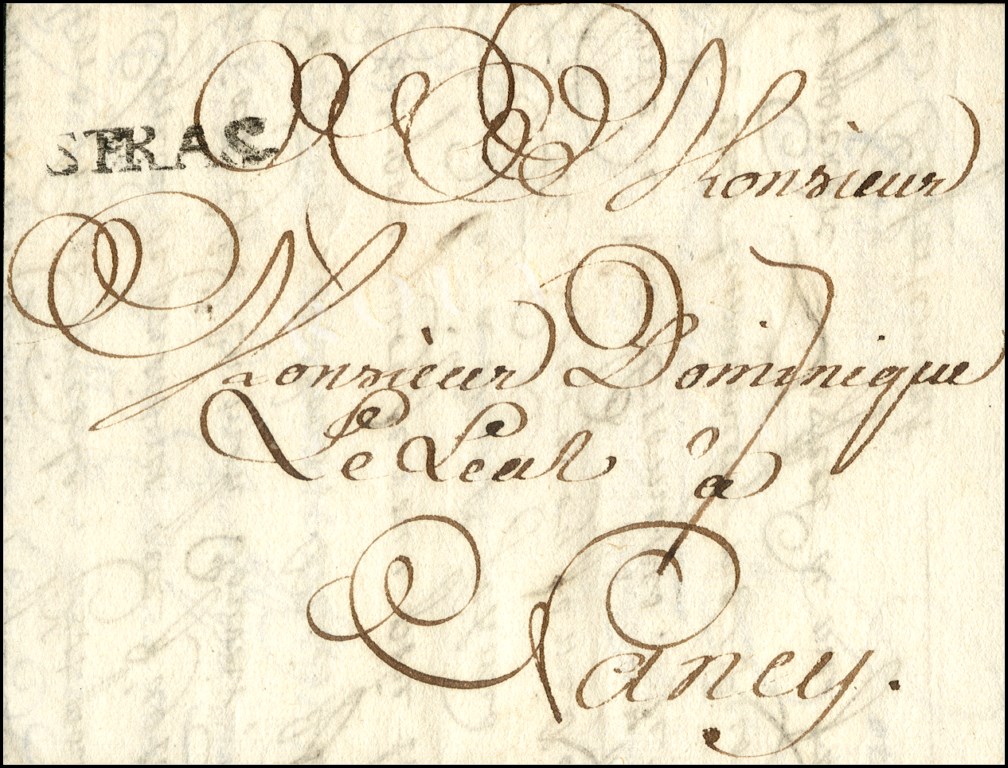 STRAS
Monsieur
Monsieur Dominique
Le Leal à
Nancy.
7